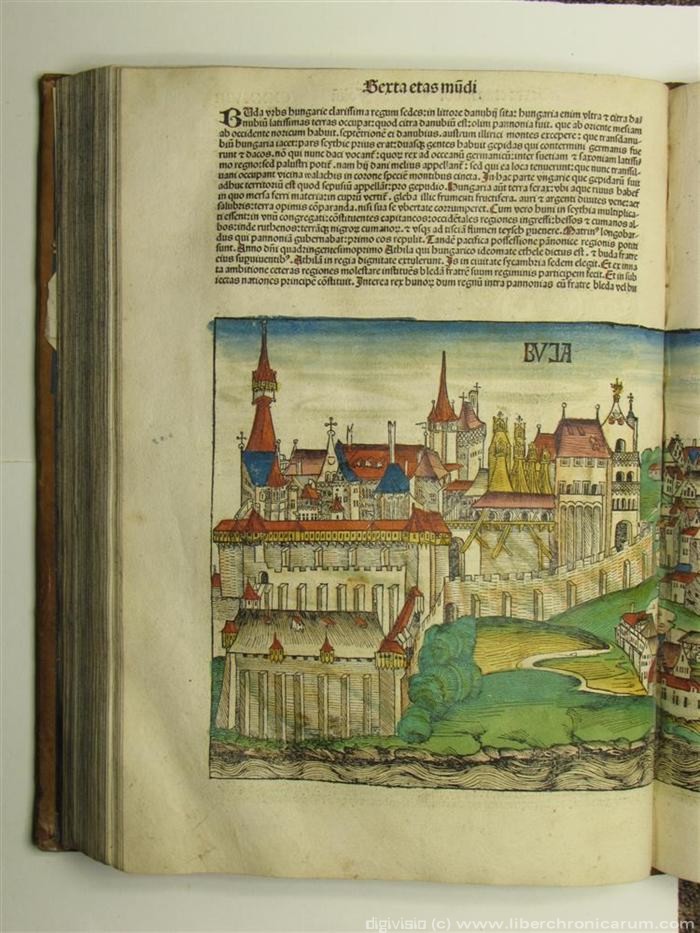 Sexta etas mūdi
BUda vrbs hungarie clarissima regum sedes: in littore danubij sita: hungaria enim vltra ⁊ citra da/
nubiū latissimas terras occupat: quod citra danubiū est: olim pannonia fuit. que ab oriente mesiam
ab occidente noricum habuit. septētrionē ei danubius. austrum illirici montes excepere: que transdanu/
biū hungaria iacet: pars scythie prius erat: duasqȝ gentes habuit gepidas qui contermini germanis fue
runt ⁊ dacos. nō qui nunc daci vocanť: quoȝ rex ad occeanū germanicū: inter suetiam ⁊ saxoniam latissi/
mo regno: sed palustri potiť. nam hij dani melius appellanť: sed qui ea loca tenuerunt: que nunc transsil/
uani occupant vicina walachis in corone speciē montibus cincta. In hac parte vngarie que gepidarū fuit
adhuc territoriū est quod sepusiū appellāt: pro gepudio. Hungaria aūt terra ferax: vbi aque riuus habeť
in quo mersa ferri materia: in cuprū vertiť. gleba illic frumenti fructifera. auri ⁊ argenti diuites vene: aer
salubris: terra optimis cōparanda. nisi sua se vbertate corrumperet. Cum vero huni in scythia multiplica/
ti essent: in vnū congregati: cōstituentes capitaneos: occidētales regiones ingressi: bessos ⁊ cumanos al/
bos: inde ruthenos: terrāqȝ nigroȝ cumanoȝ. ⁊ vsqȝ ad tisciā flumen
longobar/
dus qui pannoniā gubernabat: primo eos repulit. Tandē pacifica possessione pānonice regionis potiti
sunt. Anno dn̄i quadringentesimoprimo Athila qui hungarico ideomate ethele dictus est. ⁊ buda fratre
eius Athilā in regia dignitate extulerunt. Is in ciuitate sycambria sedem elegit. Et ex inna
ta ambitione ceteras regiones molestare instituēs bledā fratrē suum regiminis participem fecit. Et in sub
iectas nationes principē cōstituit. Interea rex hunoȝ dum regnū intra pannonias cū fratre bleda vel bu
BVDA
digivisio (c) www.liberchronicarum.com